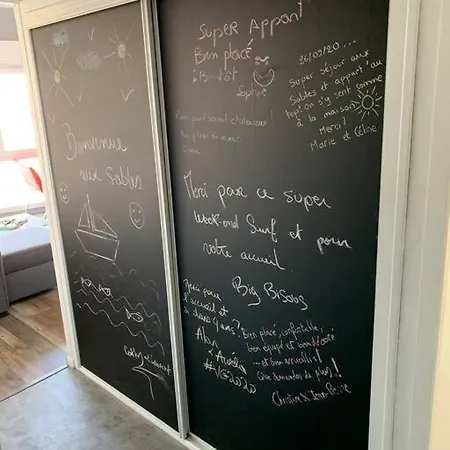 Bienvenue
aux Sables
Super Appart
Bien placé
À Bientôt
Sophie
26/09/20...
Super séjour aux
Sables et appart' au
top! on s'y sent comme
à la maison
Merci!
Marie et Céline
Merci pour ce super
week-end Surf et pour
votre accueil.
Big Bisous
Merci pour
l'accueil et
à dans 4 ans?
Alan
&
#VG2020
bien placé, confortable,
bien équipé et bien décoré
... et bien accueillis!
Que demander de plus!
Christine & Jean-Pierre